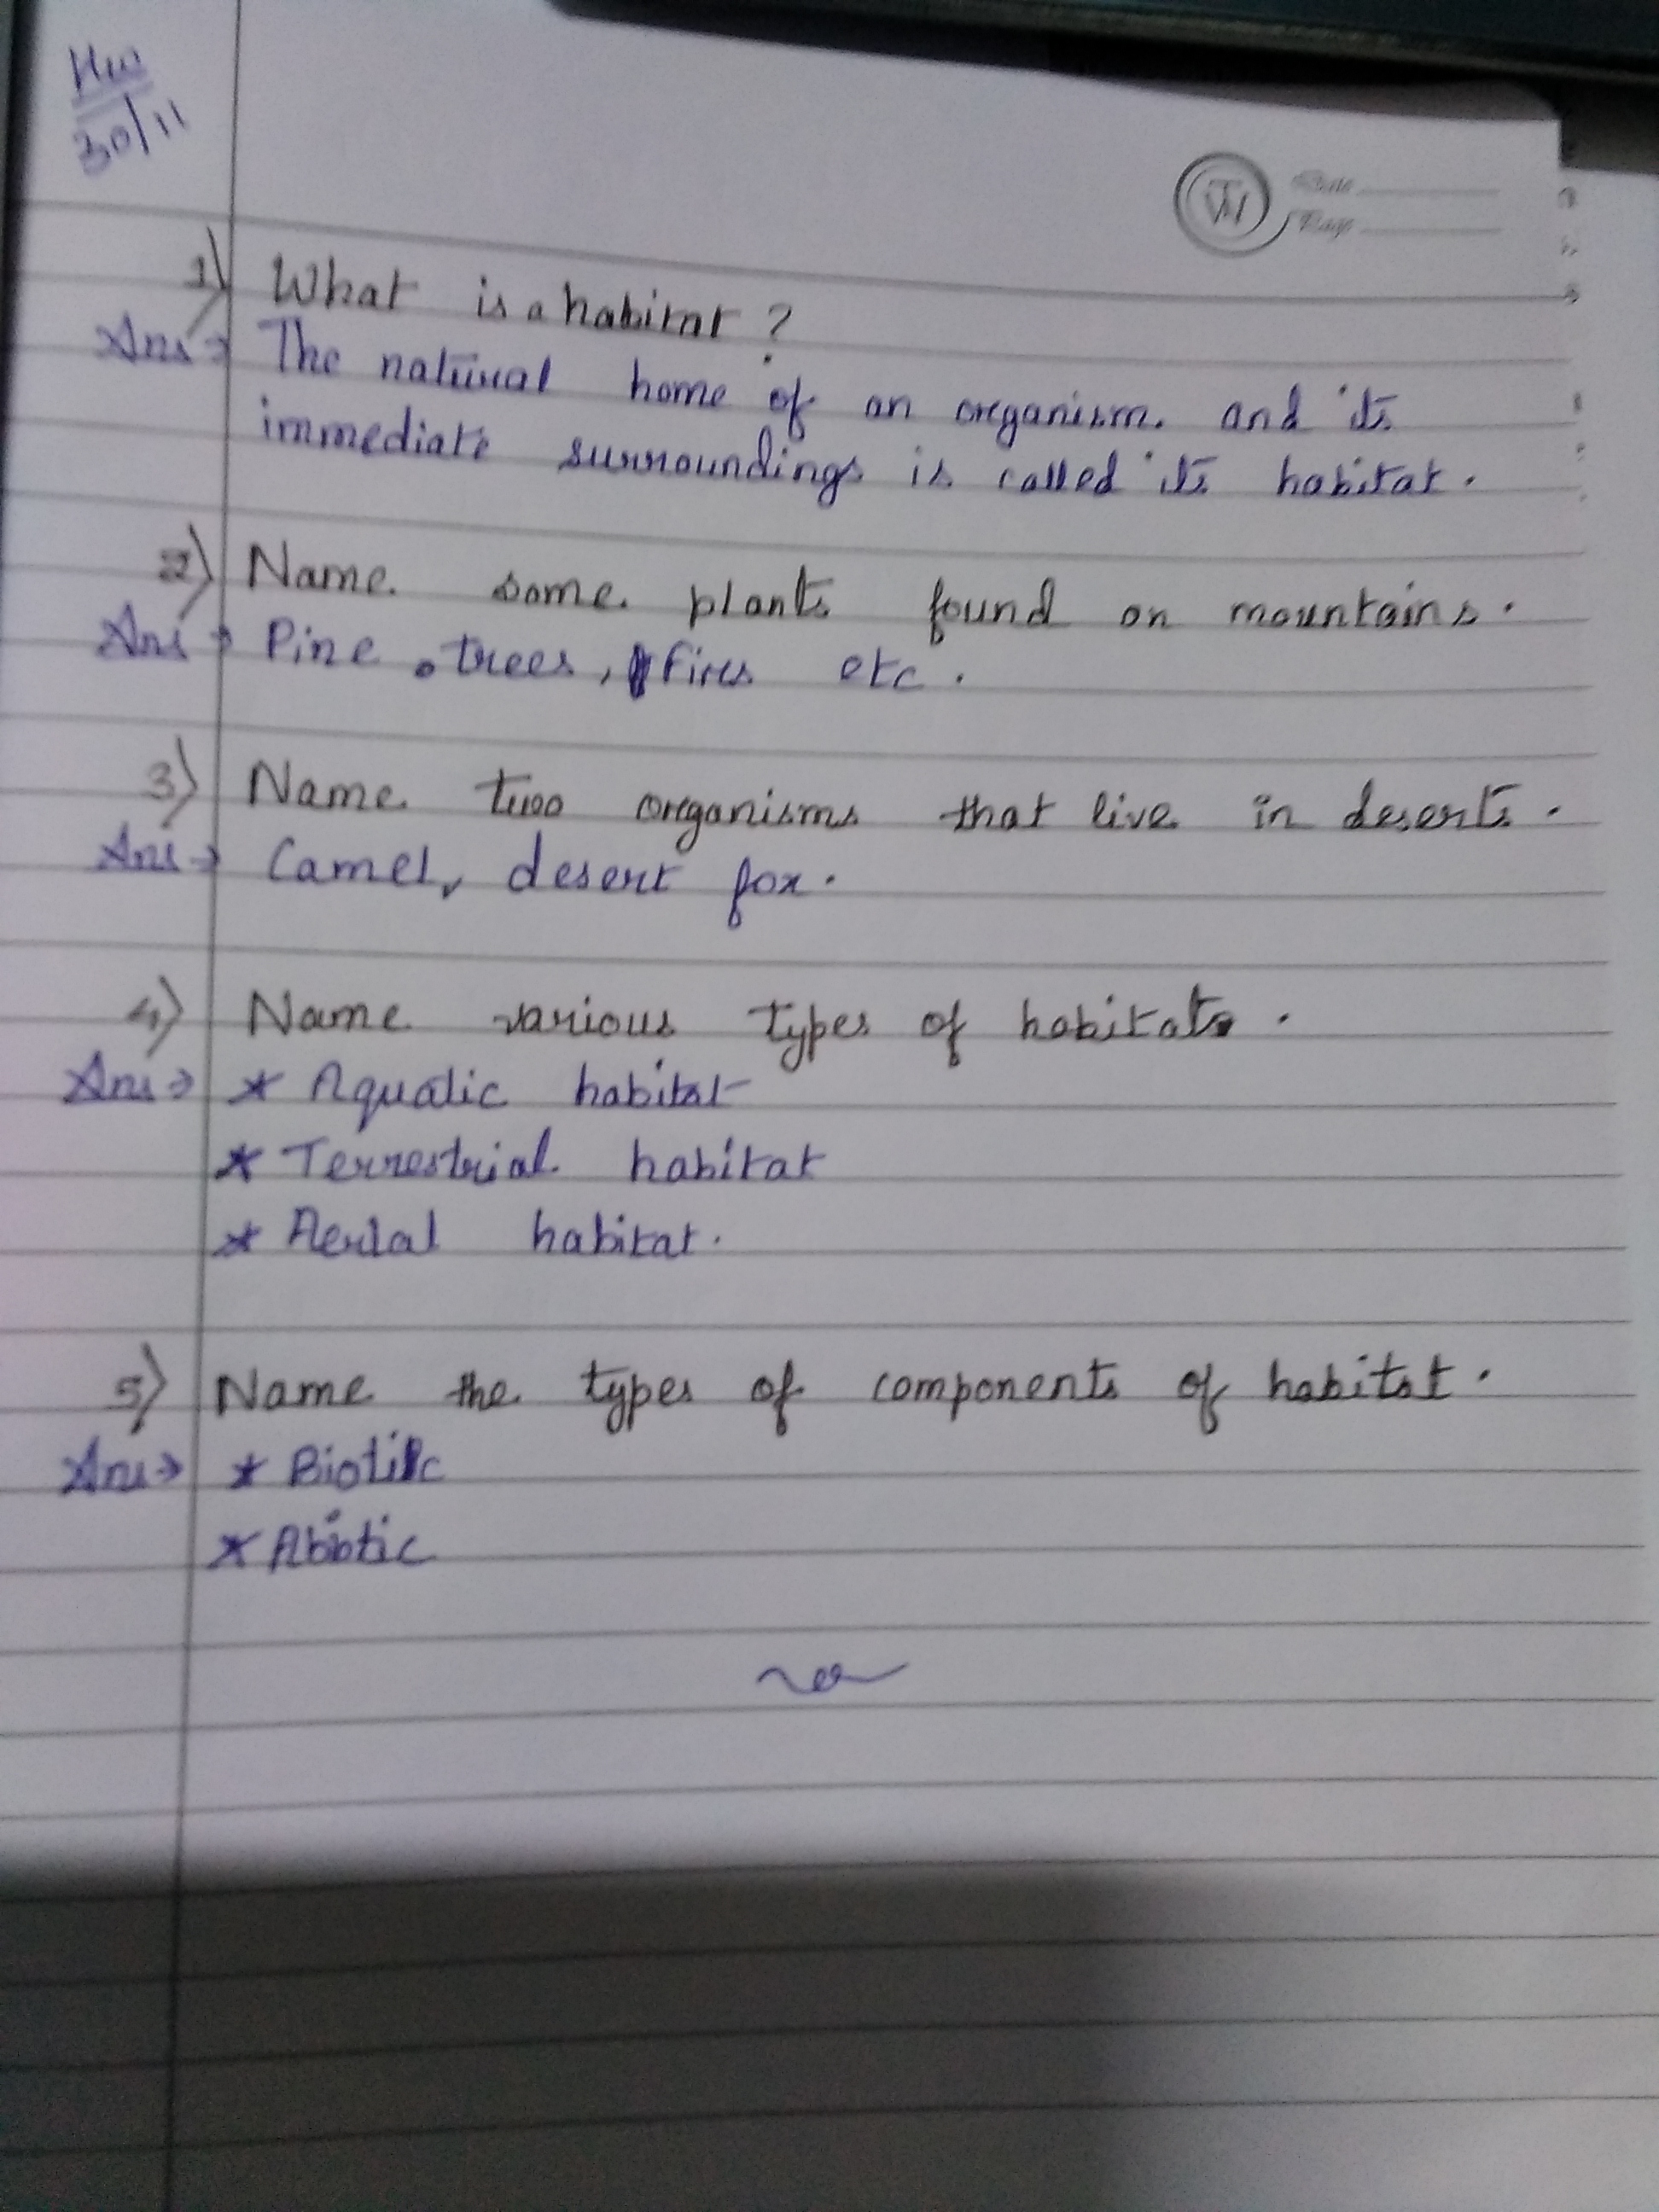 HW
30/11
Date
Page
1) What is a habitat ?
Ans → The natural home of an organism. and its
immediate surroundings is called its habitat.
2) Name some plants found on mountains.
Ans → Pine trees, firs etc.
3) Name two organisms that live in deserts.
Ans → Camel, desert fox.
4) Name various types of habitats.
Ans → * Aquatic habitat
* Terrestrial habitat
* Aerial habitat.
5) Name the types of components of habitat.
Ans → * Biotic
* Abiotic